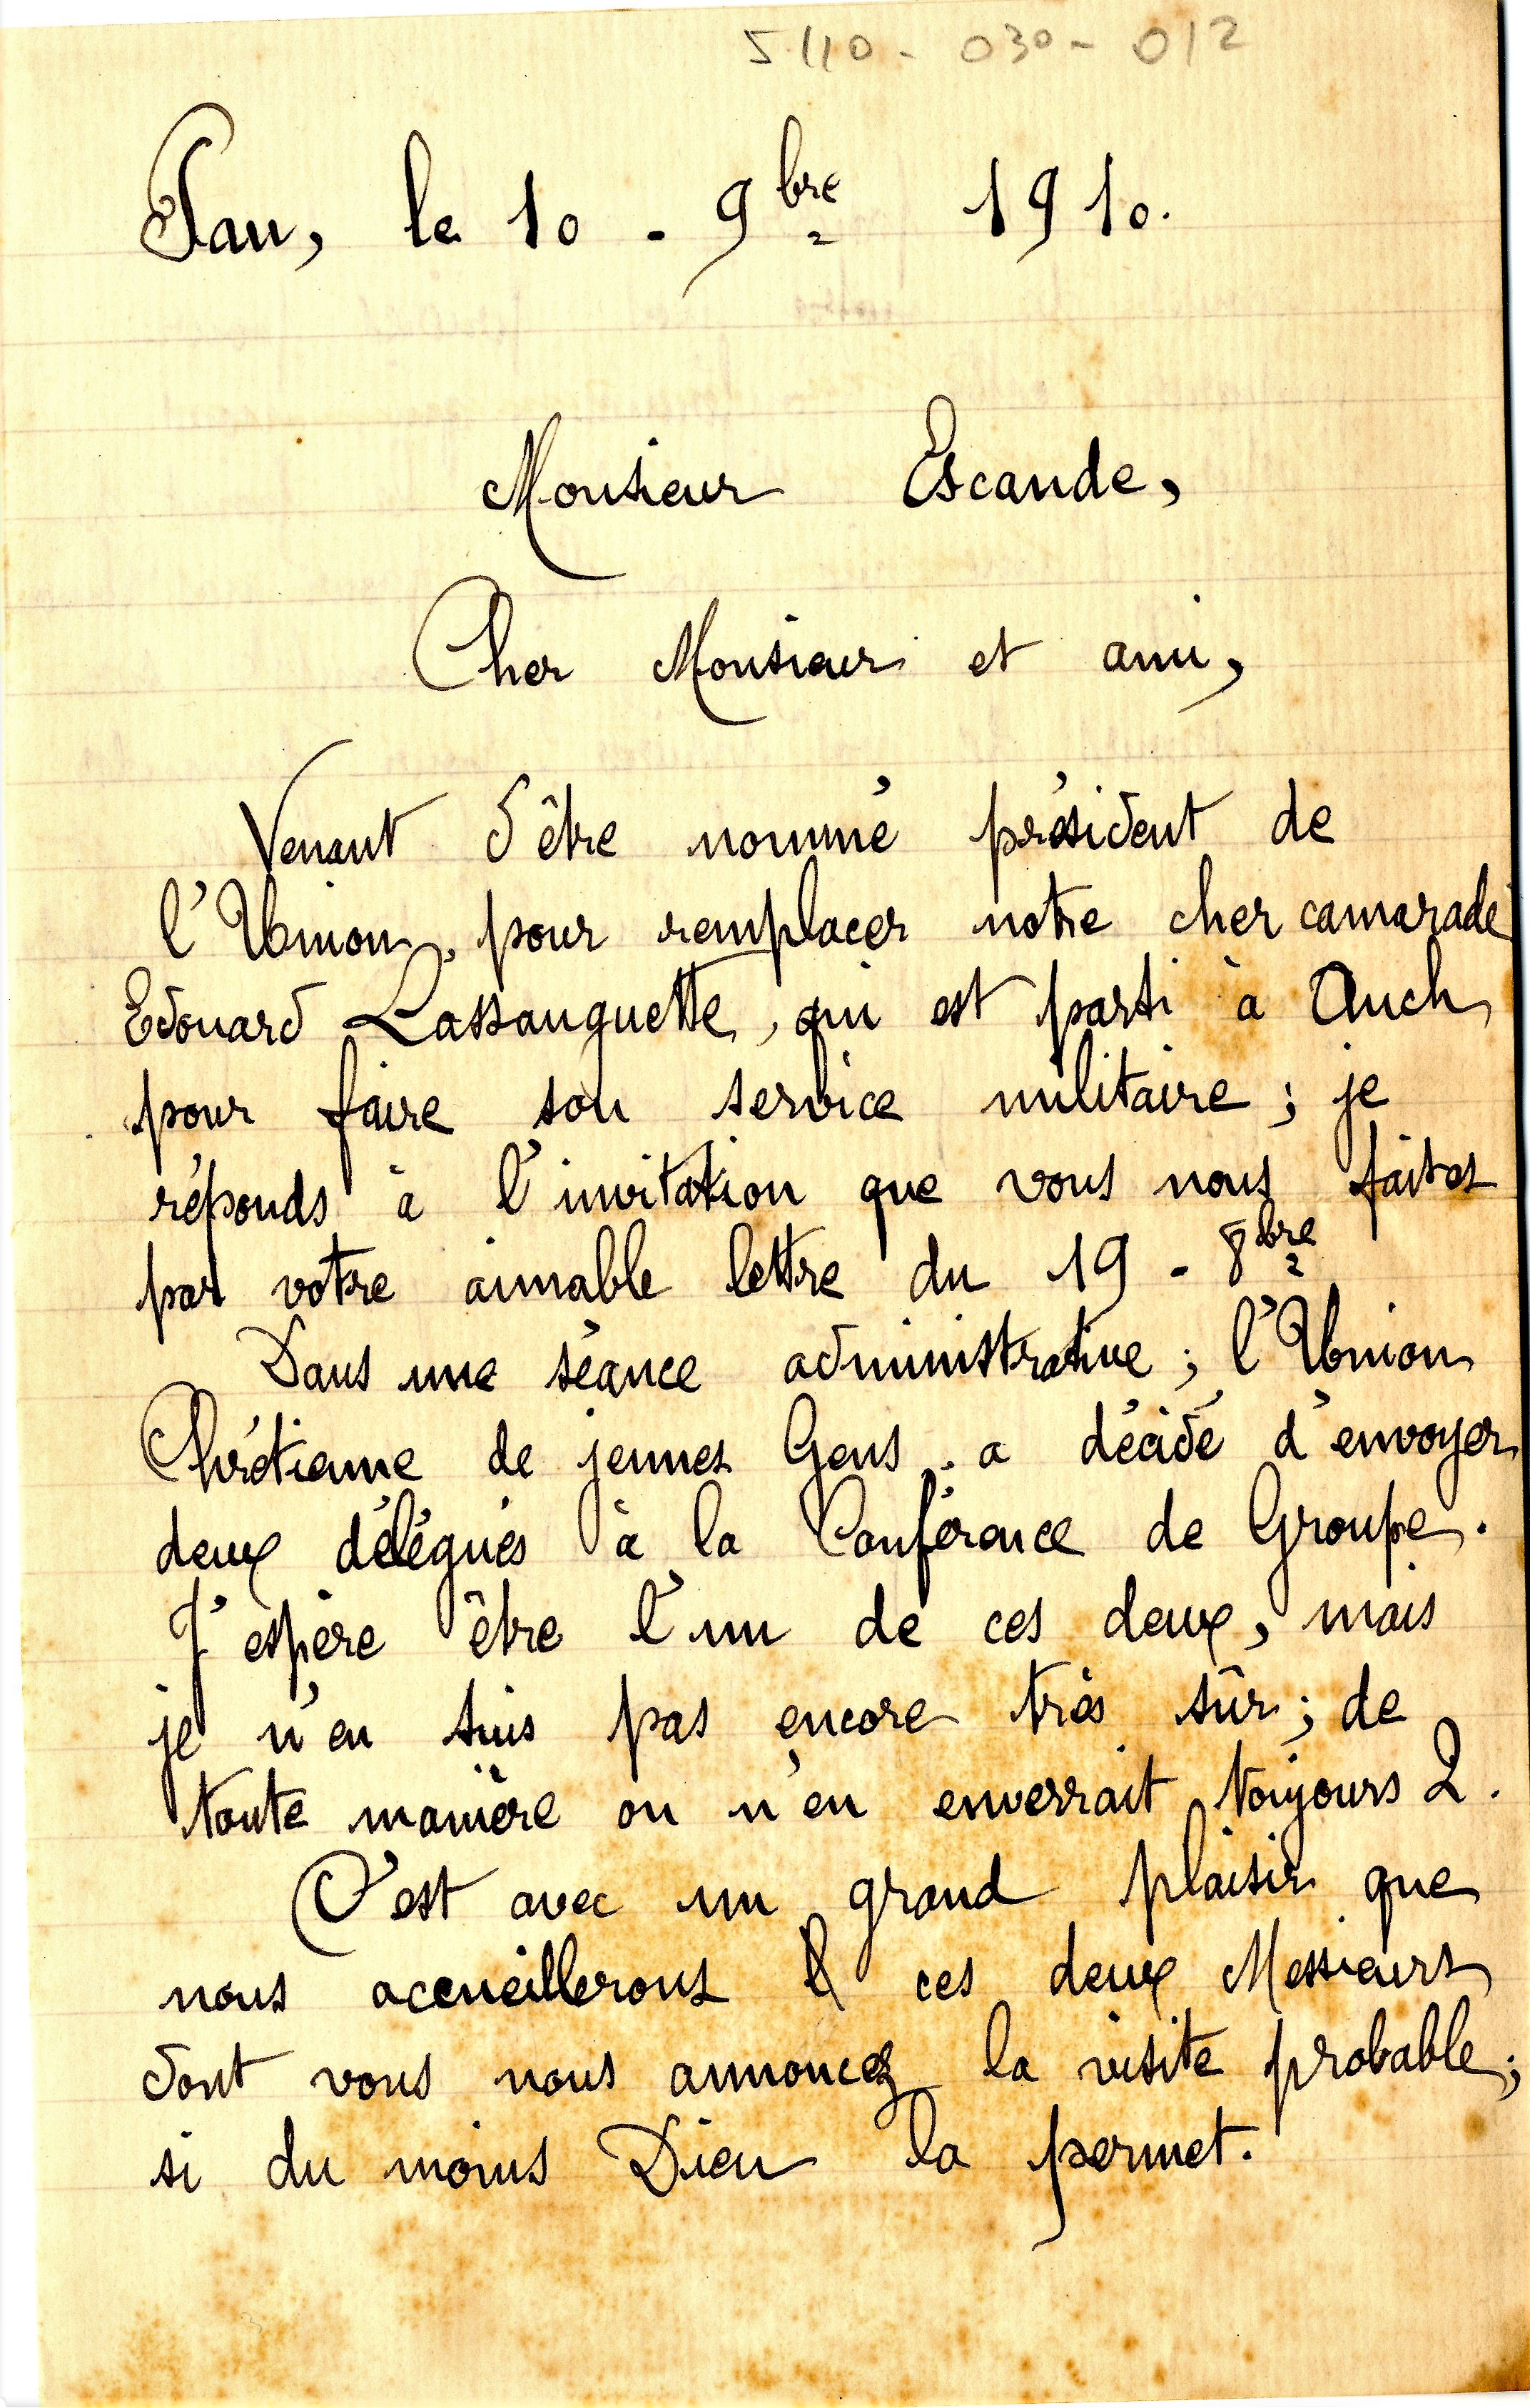 5110 - 030 - 012
Pau, le 10 - 9bre 1910.
Monsieur Escande,
Cher Monsieur et ami,
Venant d'être nommé président de
l'Union, pour remplacer notre cher camarade
Edouard Lassauguette, qui est parti à Auch
pour faire son service militaire ; je
réponds à l'invitation que vous nous faites
par votre aimable lettre du 19 - 8bre
Dans une séance administrative ; l'Union
Chrétienne de jeunes Gens, a décidé d'envoyer
deux délégués à la Conférence de Groupe.
J'espère être l'un de ces deux, mais
je n'en suis pas encore très sûr ; de
toute manière on n'en enverrait toujours 2.
C'est avec un grand plaisir que
nous accueillerons ces deux Messieurs
dont vous nous annoncez la visite probable ;
si du moins Dieu la permet.